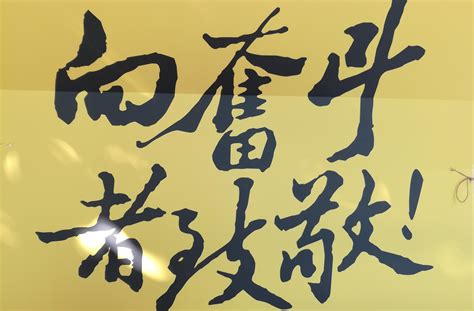 向奋斗
者致敬!